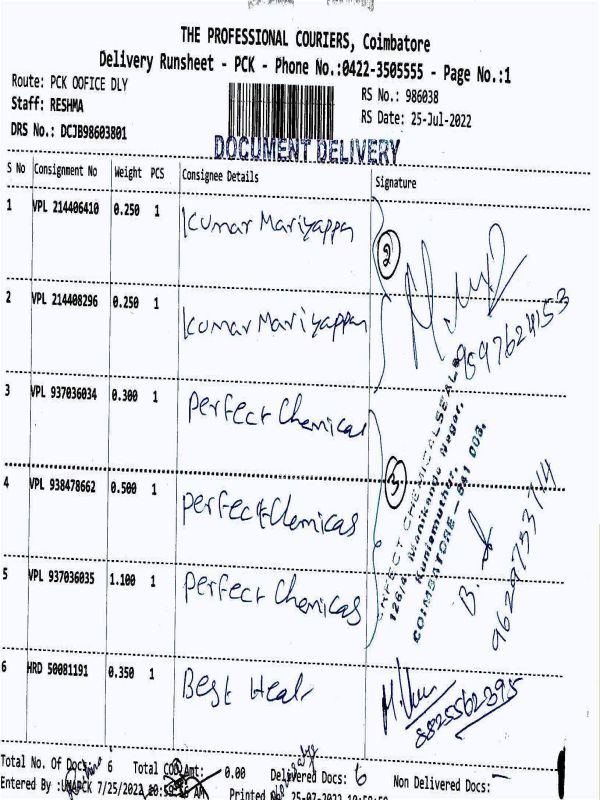 THE PROFESSIONAL COURIERS, Coimbatore
Delivery Runsheet - PCK - Phone No.:0422-3505555 - Page No.:1
Route: PCK OOFICE DLY
RS No.: 986038
Staff: RESHMA
RS Date: 25-Jul-2022
DRS No.: DCJB98603801
DOCUMENT DELIVERY
S No Consignment No Weight PCS Consignee Details Signature
1 VPL 214406410 0.250 1 Kumar Mariyappan
2
2 VPL 214408296 0.250 1 Kumar Mariyappan
9597624153
3 VPL 937036034 0.300 1 Perfect Chemical
3
4 VPL 938478662 0.500 1 Perfect Chemicas
5 VPL 937036035 1.100 1 Perfect Chemicas
CHEMICAL SEALS
126/4, Manikanda Nagar,
Kuniamuthur,
COIMBATORE - 641 008.
B.
9629753714
6 HRD 50081191 0.350 1 Best Heal
8825562395
Total No. Of Docs: 6 Total COD Amt: 0.00 Delivered Docs: 6 Non Delivered Docs: -
Entered By : 7/25/2022 Printed 25-07-2022